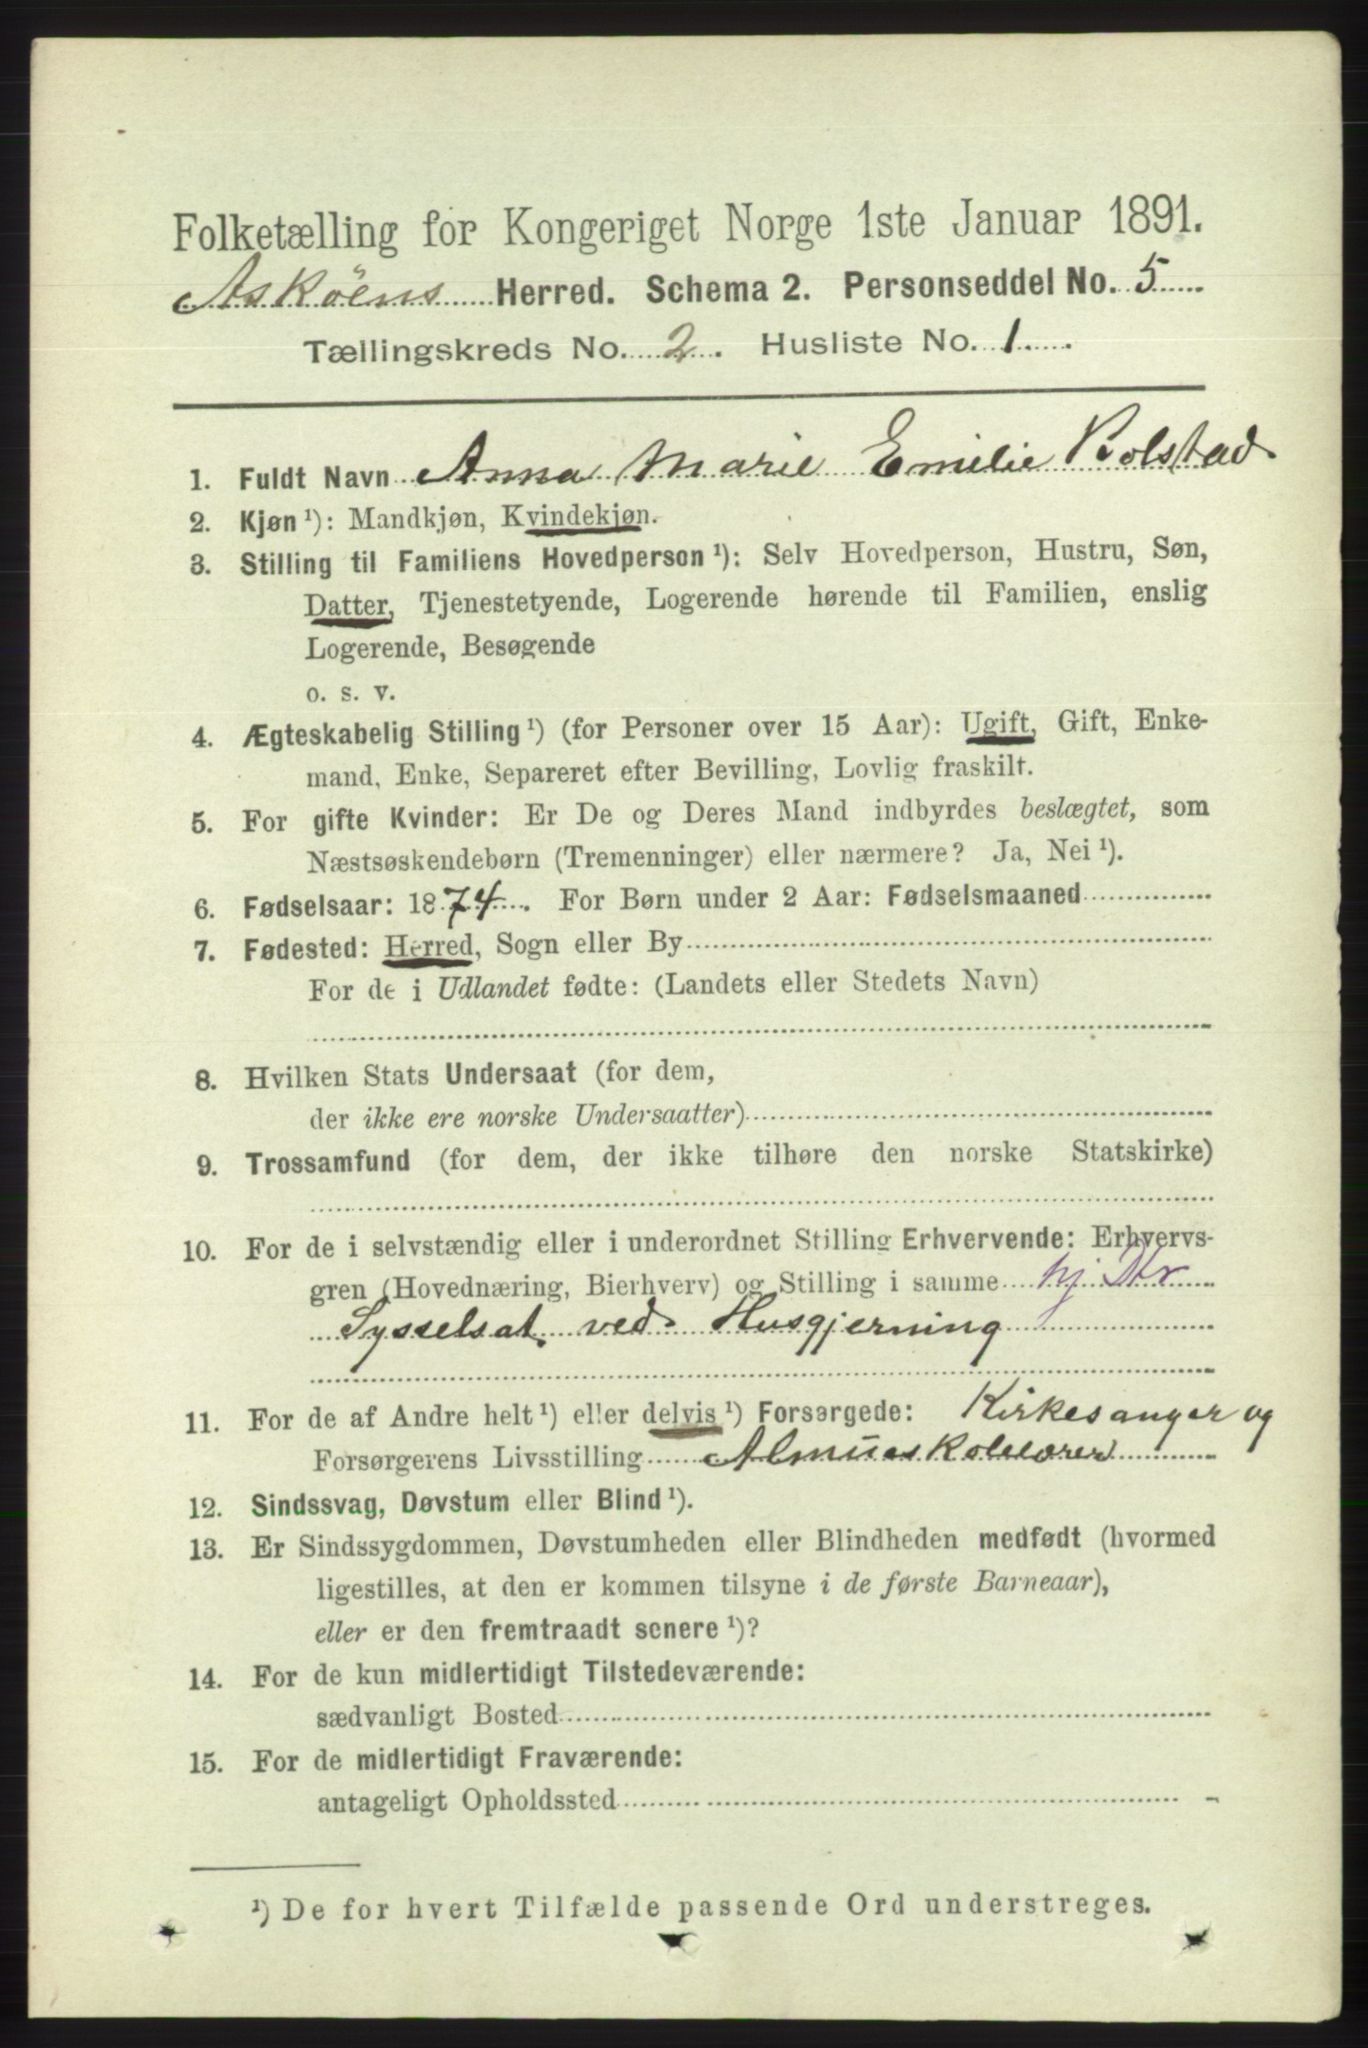 Folketælling for Kongeriget Norge 1ste Januar 1891.
Askøens Herred. Schema 2. Personseddel No. 5
Tællingskreds No. 2. Husliste No. 1.
1. Fuldt Navn Anna Marie Emilie Bolstad
2. Kjøn ¹): Mandkjøn, Kvindekjøn.
3. Stilling til Familiens Hovedperson ¹): Selv Hovedperson, Hustru, Søn,
Datter, Tjenestetyende, Logerende hørende til Familien, enslig
Logerende, Besøgende
o. s. v.
4. Ægteskabelig Stilling ¹) (for Personer over 15 Aar): Ugift, Gift, Enke-
mand, Enke, Separeret efter Bevilling, Lovlig fraskilt.
5. For gifte Kvinder: Er De og Deres Mand indbyrdes beslægtet, som
Næstsøskendebørn (Tremenninger) eller nærmere? Ja, Nei ¹).
6. Fødselsaar: 1874. For Børn under 2 Aar: Fødselsmaaned
7. Fødested: Herred, Sogn eller By
For de i Udlandet fødte: (Landets eller Stedets Navn)
8. Hvilken Stats Undersaat (for dem,
der ikke ere norske Undersaatter)
9. Trossamfund (for dem, der ikke tilhøre den norske Statskirke)
10. For de i selvstændig eller i underordnet Stilling Erhvervende: Erhvervs-
gren (Hovednæring, Bierhverv) og Stilling i samme hj
Sysselsat ved Husgjerning
11. For de af Andre helt ¹) eller delvis ¹) Forsørgede: Kirkesanger og
Forsørgerens Livsstilling Almueskolelærer
12. Sindssvag, Døvstum eller Blind ¹).
13. Er Sindssygdommen, Døvstumheden eller Blindheden medfødt (hvormed
ligestilles, at den er kommen tilsyne i de første Barneaar),
eller er den fremtraadt senere ¹)?
14. For de kun midlertidigt Tilstedeværende:
sædvanligt Bosted
15. For de midlertidigt Fraværende:
antageligt Opholdssted
¹) De for hvert Tilfælde passende Ord understreges.